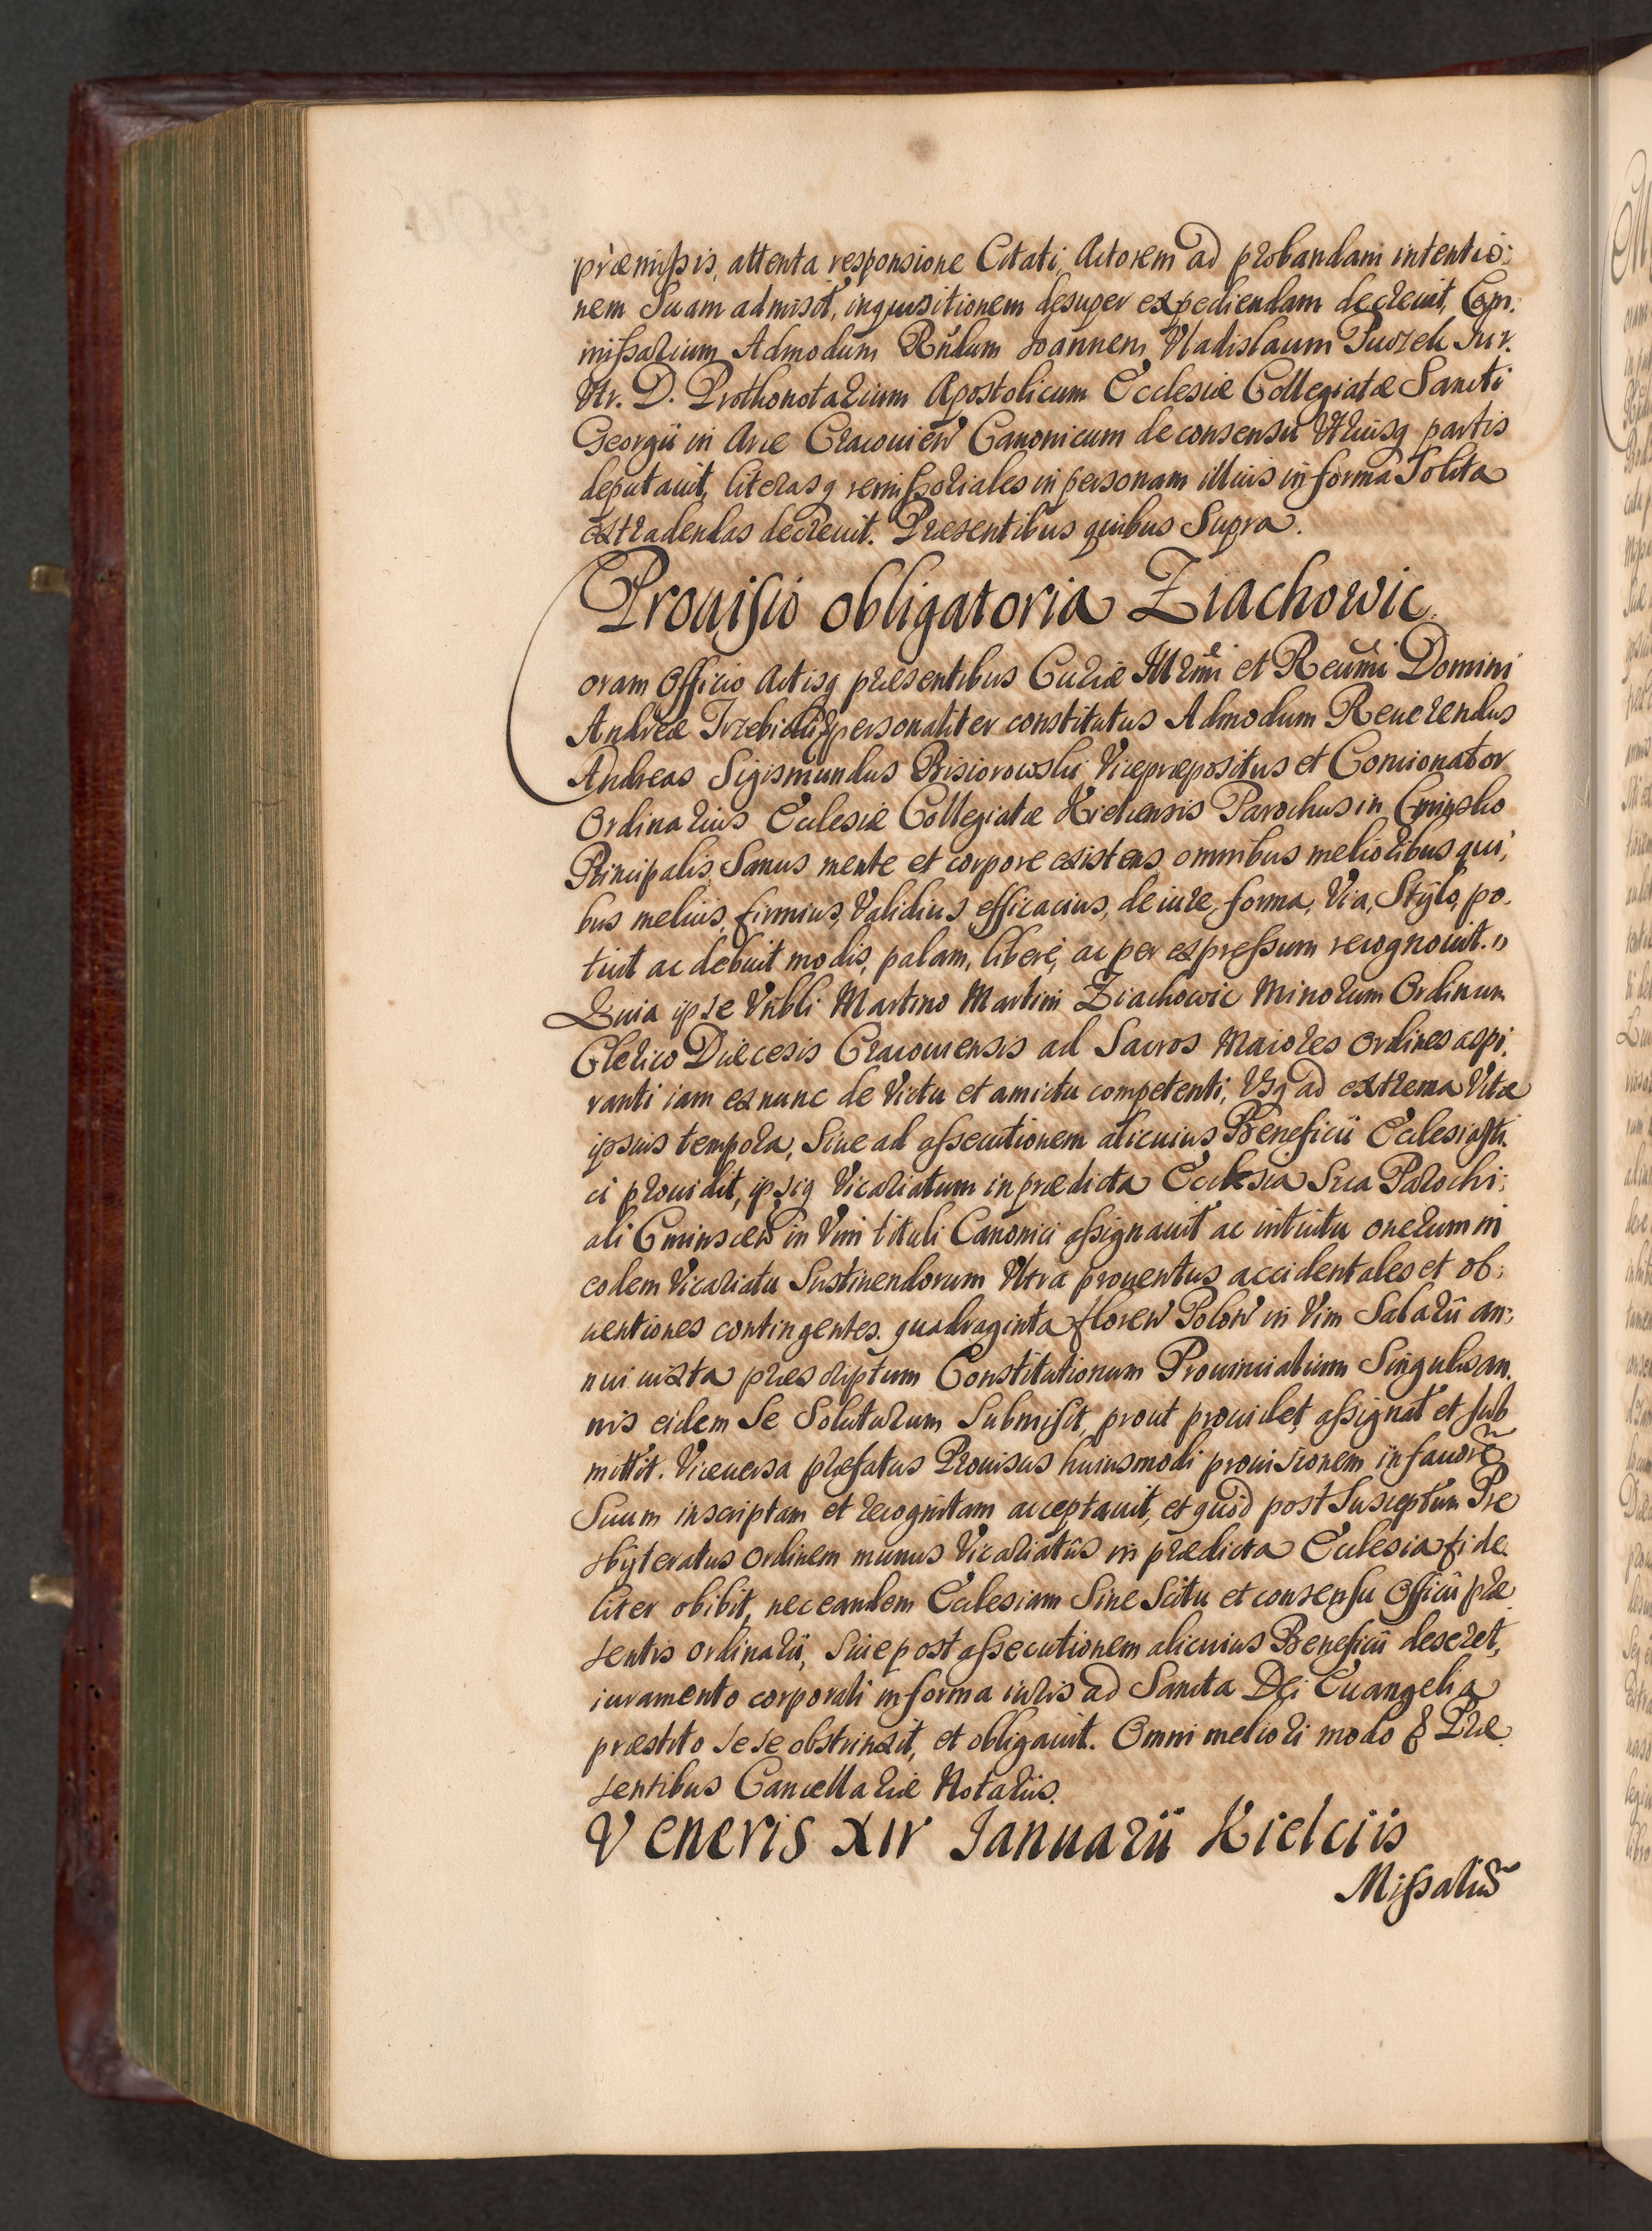 præmißis, attenta responsione Citati, Actorem ad probandam intentio:
nem Suam admisit, inquisitionem desuper expediendam decreuit, Com:
mißarium Admodum Rndum Joannem Vladislaum Jur.
Vtr. D. Prothonotarium Apostolicum Ecclesiæ Collegiatæ Sancti
Georgii in Arce Cracouien Canonicum de consensu Vtriusq partis
deputauit, literasq remißoriales in personam illius in forma Solita
extradendas decreuit. Præsentibus quibus Supra.
Prouisio obligatoria Ziachowic.
Coram Officio Actisq præsentibus Curiæ Illrmi et Reumi Domini
Andreæ Trzebicki personaliter constitutus Admodum Reuerendus
Andreas Sigismundus Bisiorowski, Vicepræpositus et Concionator
Ordinarius Ecclesiæ Collegiatæ Kielcensis Parochus in Cminsko
Principalis, Sanus mente et corpore existens, omnibus melioribus qui;
bus melius, firmius, Validius, efficacius, de iure, forma, Via, Stylo, po.
tuit ac debuit modis, palam, liberè, ac per expreßum recognouit.
Quia ipse Vnbli Martino Martini Ziachowic Minorum Ordinum
Clerico Diæcesis Cracouiensis ad Sacros Maiores Ordines aspi.
ranti iam ex nunc de Victu et amictu competenti, Vsq ad extrema Vitæ
ipsius tempora, Siue ad aßecutionem alicuius Beneficii Ecclesiasti.
ci prouidit, ipsiq Vicariatum in prædicta Ecclesia Sua Parochi:
ali Cminscen in Vim tituli Canonici aßignauit ac intuitu onerum in
eodem Vicariatu Sustinendorum Vltra prouentus accidentales et ob:
uentiones contingentes quadraginta floren Polon in Vim Salarii an:
nui iuxta præscriptum Constitutionum Prouincialium Singulis an.
nis eidem Se Soluturum Submisit, prout prouidet, aßignat et sub
mittit. Viceuersa præfatus Prouisus huiusmodi prouisionem in fauorē
Suum inscriptam et recognitam acceptauit, et quòd post Susceptum Pre
sbyteratus ordinem munus Vicariatûs in prædicta Ecclesia fide.
liter obibit, nec eandem Ecclesiam Sine Scitu et consensu Officii præ
sentis ordinarii, Siue post aßecutionem alicuius Beneficii deseret,
iuramento corporali in forma iuris ad Sancta Dei Euangelia
præstito sese obstrinxit, et obligauit. Omni meliori modo & Præ
sentibus Cancellariæ Notariis.
Veneris XIV Januarii Kielciis
Mißaliũ